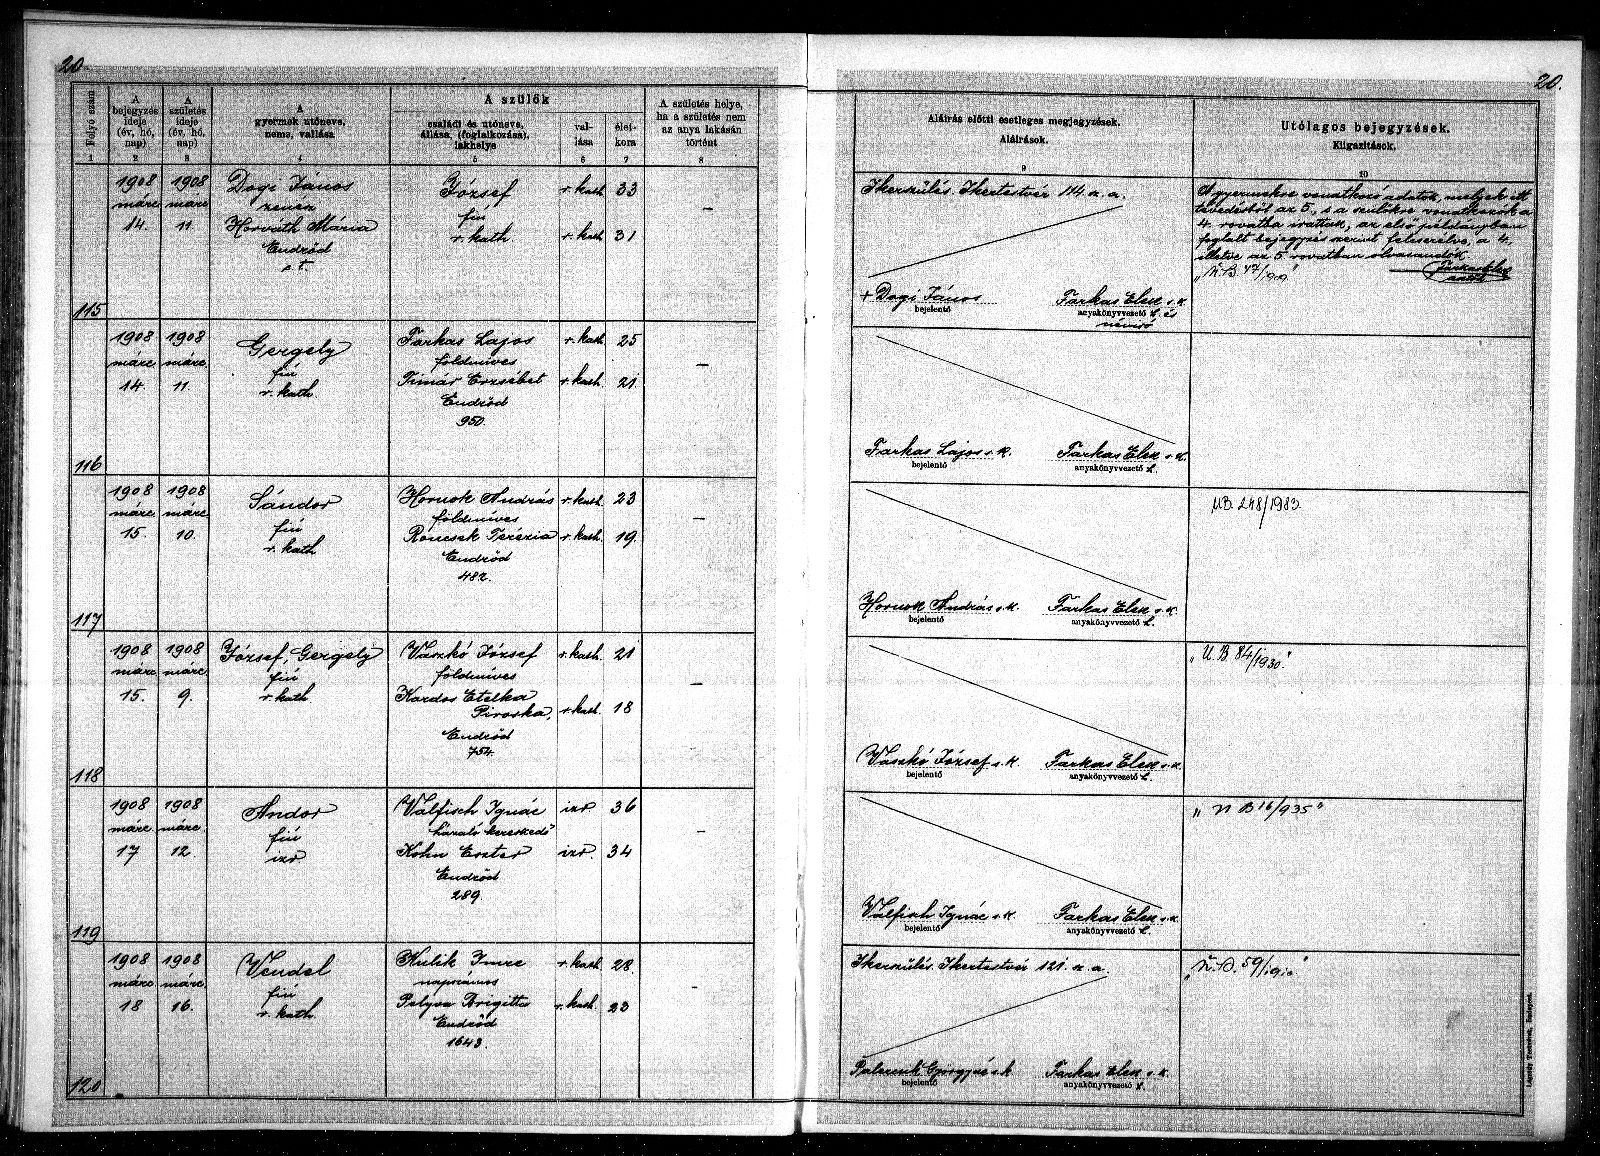 20
20.
Folyó szám
A bejegyzés ideje (év, hó, nap)
A születés ideje (év, hó, nap)
A gyermek utóneve, neme, vallása
A szülők
családi és utóneve, állása, (foglalkozása), lakhelye
vallása
életkora
A születés helye, ha a születés nem az anya lakásán történt
Aláírás előtti esetleges megjegyzések.
Aláírások.
Utólagos bejegyzések.
Kiigazítások.
1 2 3 4 5 6 7 8 9 10
115
1908 márc 14.
1908 márc 11
Dogi János
zenész
Horváth Mária
Endrőd
József
fiú
r. kath
r. kath 33
r. kath 31
–
Ikerszülés. Ikertestvér 114 sz. a.
+ Dogi János
bejelentő
Farkas Elek s. k.
anyakönyvvezető h. és
névíró
A gyermekre vonatkozó adatok, melyek itt
tévedésből az 5., s a szülőkre vonatkozók a
4. rovatba írattak, az első példányban
foglalt bejegyzés szerint felcserélve, a 4.
illetve az 5 rovatban olvasandók
116
1908 márc 14.
1908 márc 11.
Gergely
fiú
r. kath
Farkas Lajos
földmíves
Timár Erzsébet
Endrőd
950.
r. kath 25
r. kath 21.
–
Farkas Lajos s. k.
bejelentő
Farkas Elek s. k.
anyakönyvvezető h.
117
1908 márc 15.
1908 márc 10.
Sándor
fiú
r. kath
Hornok András
földmíves
Roncsek Terézia
Endrőd
482.
r. kath. 23
r. kath. 19.
–
Hornok András s. k.
bejelentő
Farkas Elek s. k.
anyakönyvvezető h.
UB. 248/1983
118
1908 márc 15.
1908 márc. 9.
József, Gergely
fiú
r. kath
Vaszkó József
földmíves
Kardos Etelka
Piroska,
Endrőd
754.
r. kath. 21
r. kath. 18
–
Vaszkó József s. k.
bejelentő
Farkas Elek s. k.
anyakönyvvezető h.
„U. B 84/1930."
119
1908 márc. 17
1908 márc. 12.
Andor
fiú
izr
Válfisch Ignác
házaló kereskedő
Kohn Eszter
Endrőd
289.
izr. 36
izr. 34
–
Válfisch Ignác s. k.
bejelentő
Farkas Elek s. k.
anyakönyvvezető h.
„U B 16/935"
120
1908 márc. 18
1908 márc. 16.
Vendel
fiú
r. kath
Kulik Imre
napszámos
Palyva Brigitta
Endrőd
1643.
r. kath 28.
r. kath. 23
–
Ikerszülés. Ikertestvér 121. sz. a.
bejelentő
Farkas Elek s. k.
anyakönyvvezető h.